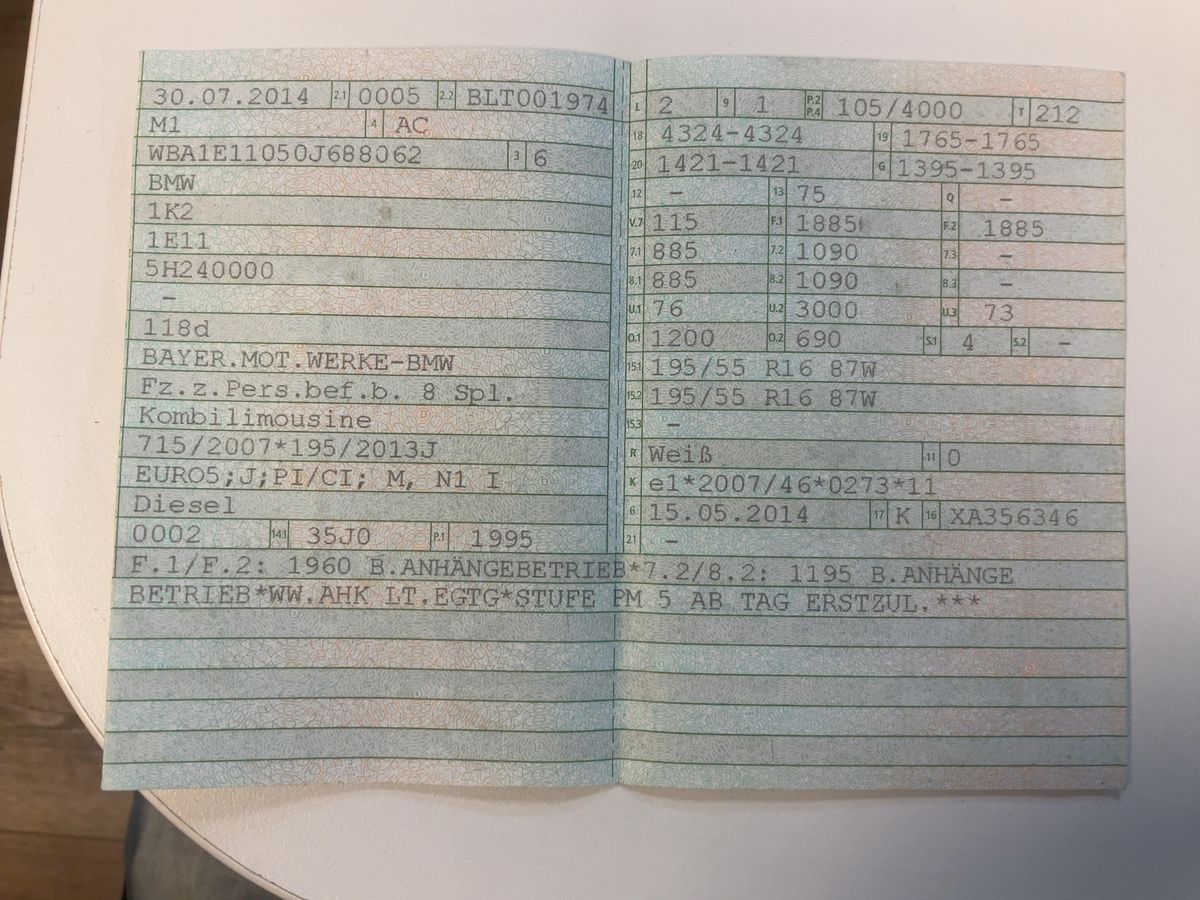 30.07.2014 2.1 0005 2.2 BLT001974
M1 4 AC
WBA1E11050J688062 3 6
BMW
1K2
1E11
5H240000
–
118d
BAYER.MOT.WERKE-BMW
Fz.z.Pers.bef.b. 8 Spl.
Kombilimousine
715/2007*195/2013J
EURO5;J;PI/CI; M, N1 I
Diesel
0002 14.1 35J0 P.1 1995
L 2 9 1 P.2 P.4 105/4000 T 212
18 4324-4324 19 1765-1765
20 1421-1421 G 1395-1395
12 – 13 75 Q –
V.7 115 F.1 1885 F.2 1885
7.1 885 7.2 1090 7.3 –
8.1 885 8.2 1090 8.3 –
U.1 76 U.2 3000 U.3 73
O.1 1200 O.2 690 S.1 4 S.2 –
15.1 195/55 R16 87W
15.2 195/55 R16 87W
15.3 –
R Weiß 11 0
K e1*2007/46*0273*11
6 15.05.2014 17 K 16 XA356346
21 –
F.1/F.2: 1960 B.ANHÄNGEBETRIEB*7.2/8.2: 1195 B.ANHÄNGE
BETRIEB*WW.AHK LT.EGTG*STUFE PM 5 AB TAG ERSTZUL.***